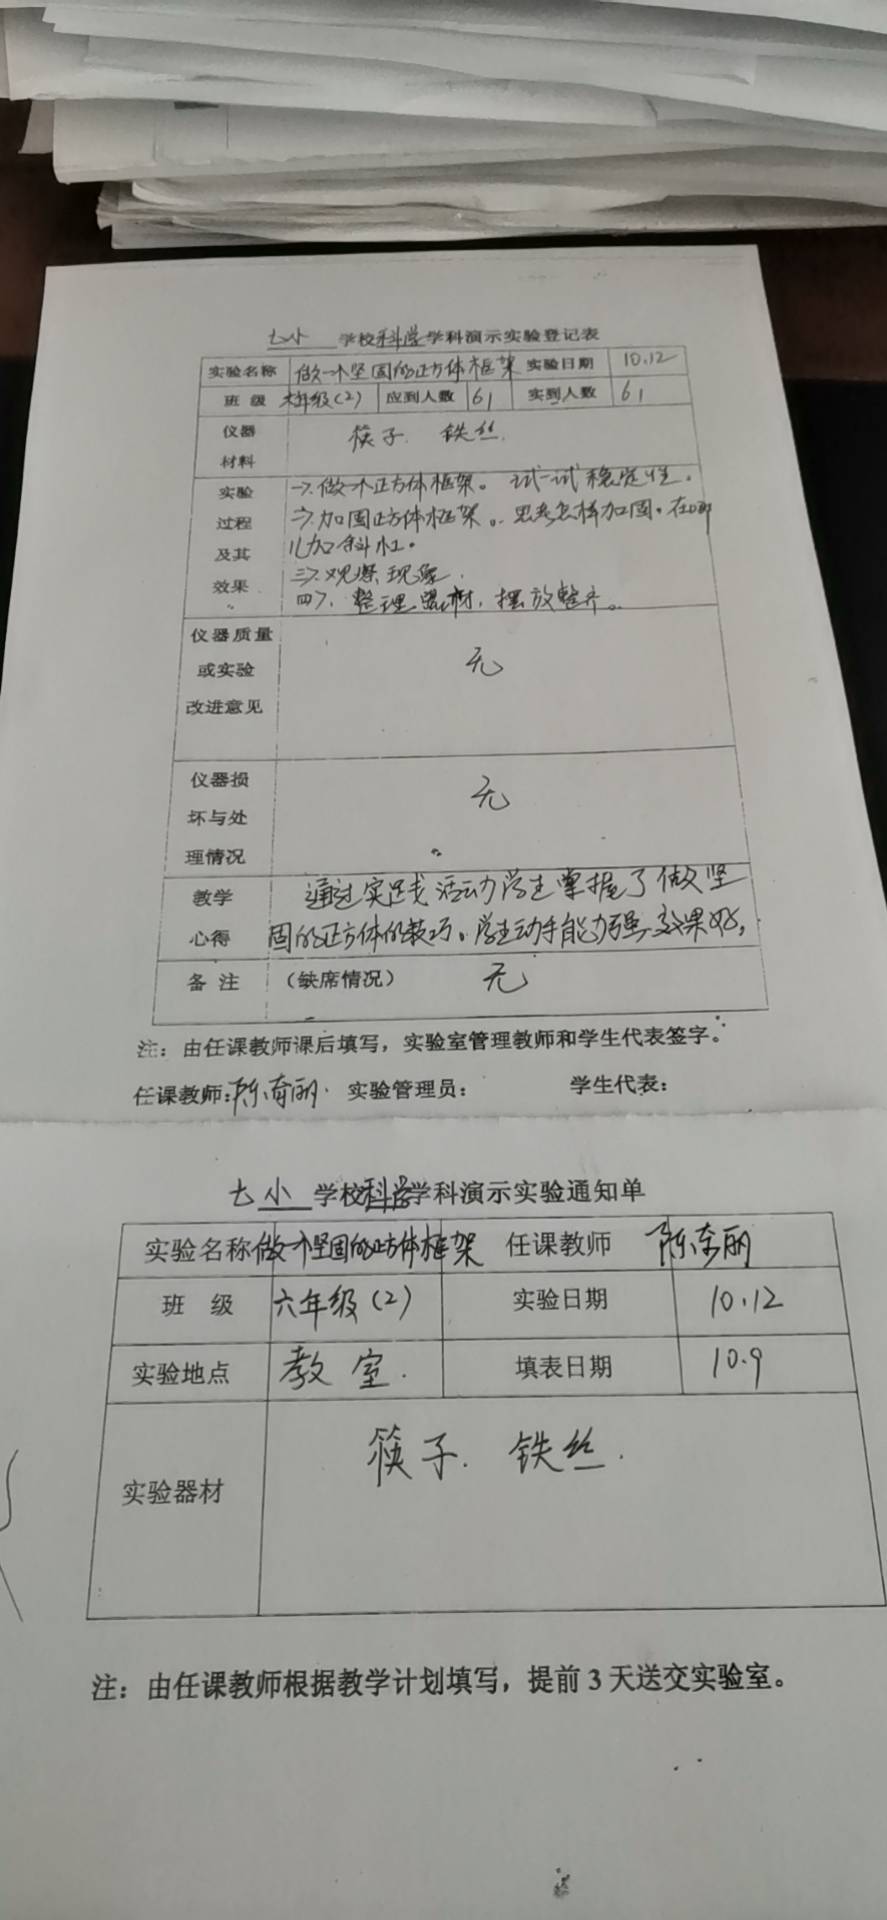 七小 学校科学学科演示实验登记表
实验名称 做一个坚固的正方体框架 实验日期 10.12
班 级 六年级(2) 应到人数 61 实到人数 61
仪器 筷子. 铁丝.
材料
实验 一>.做一个正方体框架。试一试稳定性。
过程 二>.加固正方体框架。思考怎样加固。在哪
及其 儿加斜杠。
效果 三>.观察现象.
四>.整理器材,摆放整齐。
仪器质量
或实验 无
改进意见
仪器损
坏与处 无
理情况
教学 通过实践活动学生掌握了做坚
心得 固的正方体的技巧。学生动手能力强,效果好,
备 注 (缺席情况) 无
注:由任课教师课后填写,实验室管理教师和学生代表签字。
任课教师:陈丽. 实验管理员: 学生代表:
七小 学校科学学科演示实验通知单
实验名称 做一个坚固的正方体框架 任课教师 陈丽
班 级 六年级(2) 实验日期 10.12
实验地点 教室. 填表日期 10.9
实验器材 筷子. 铁丝.
注:由任课教师根据教学计划填写,提前3天送交实验室。